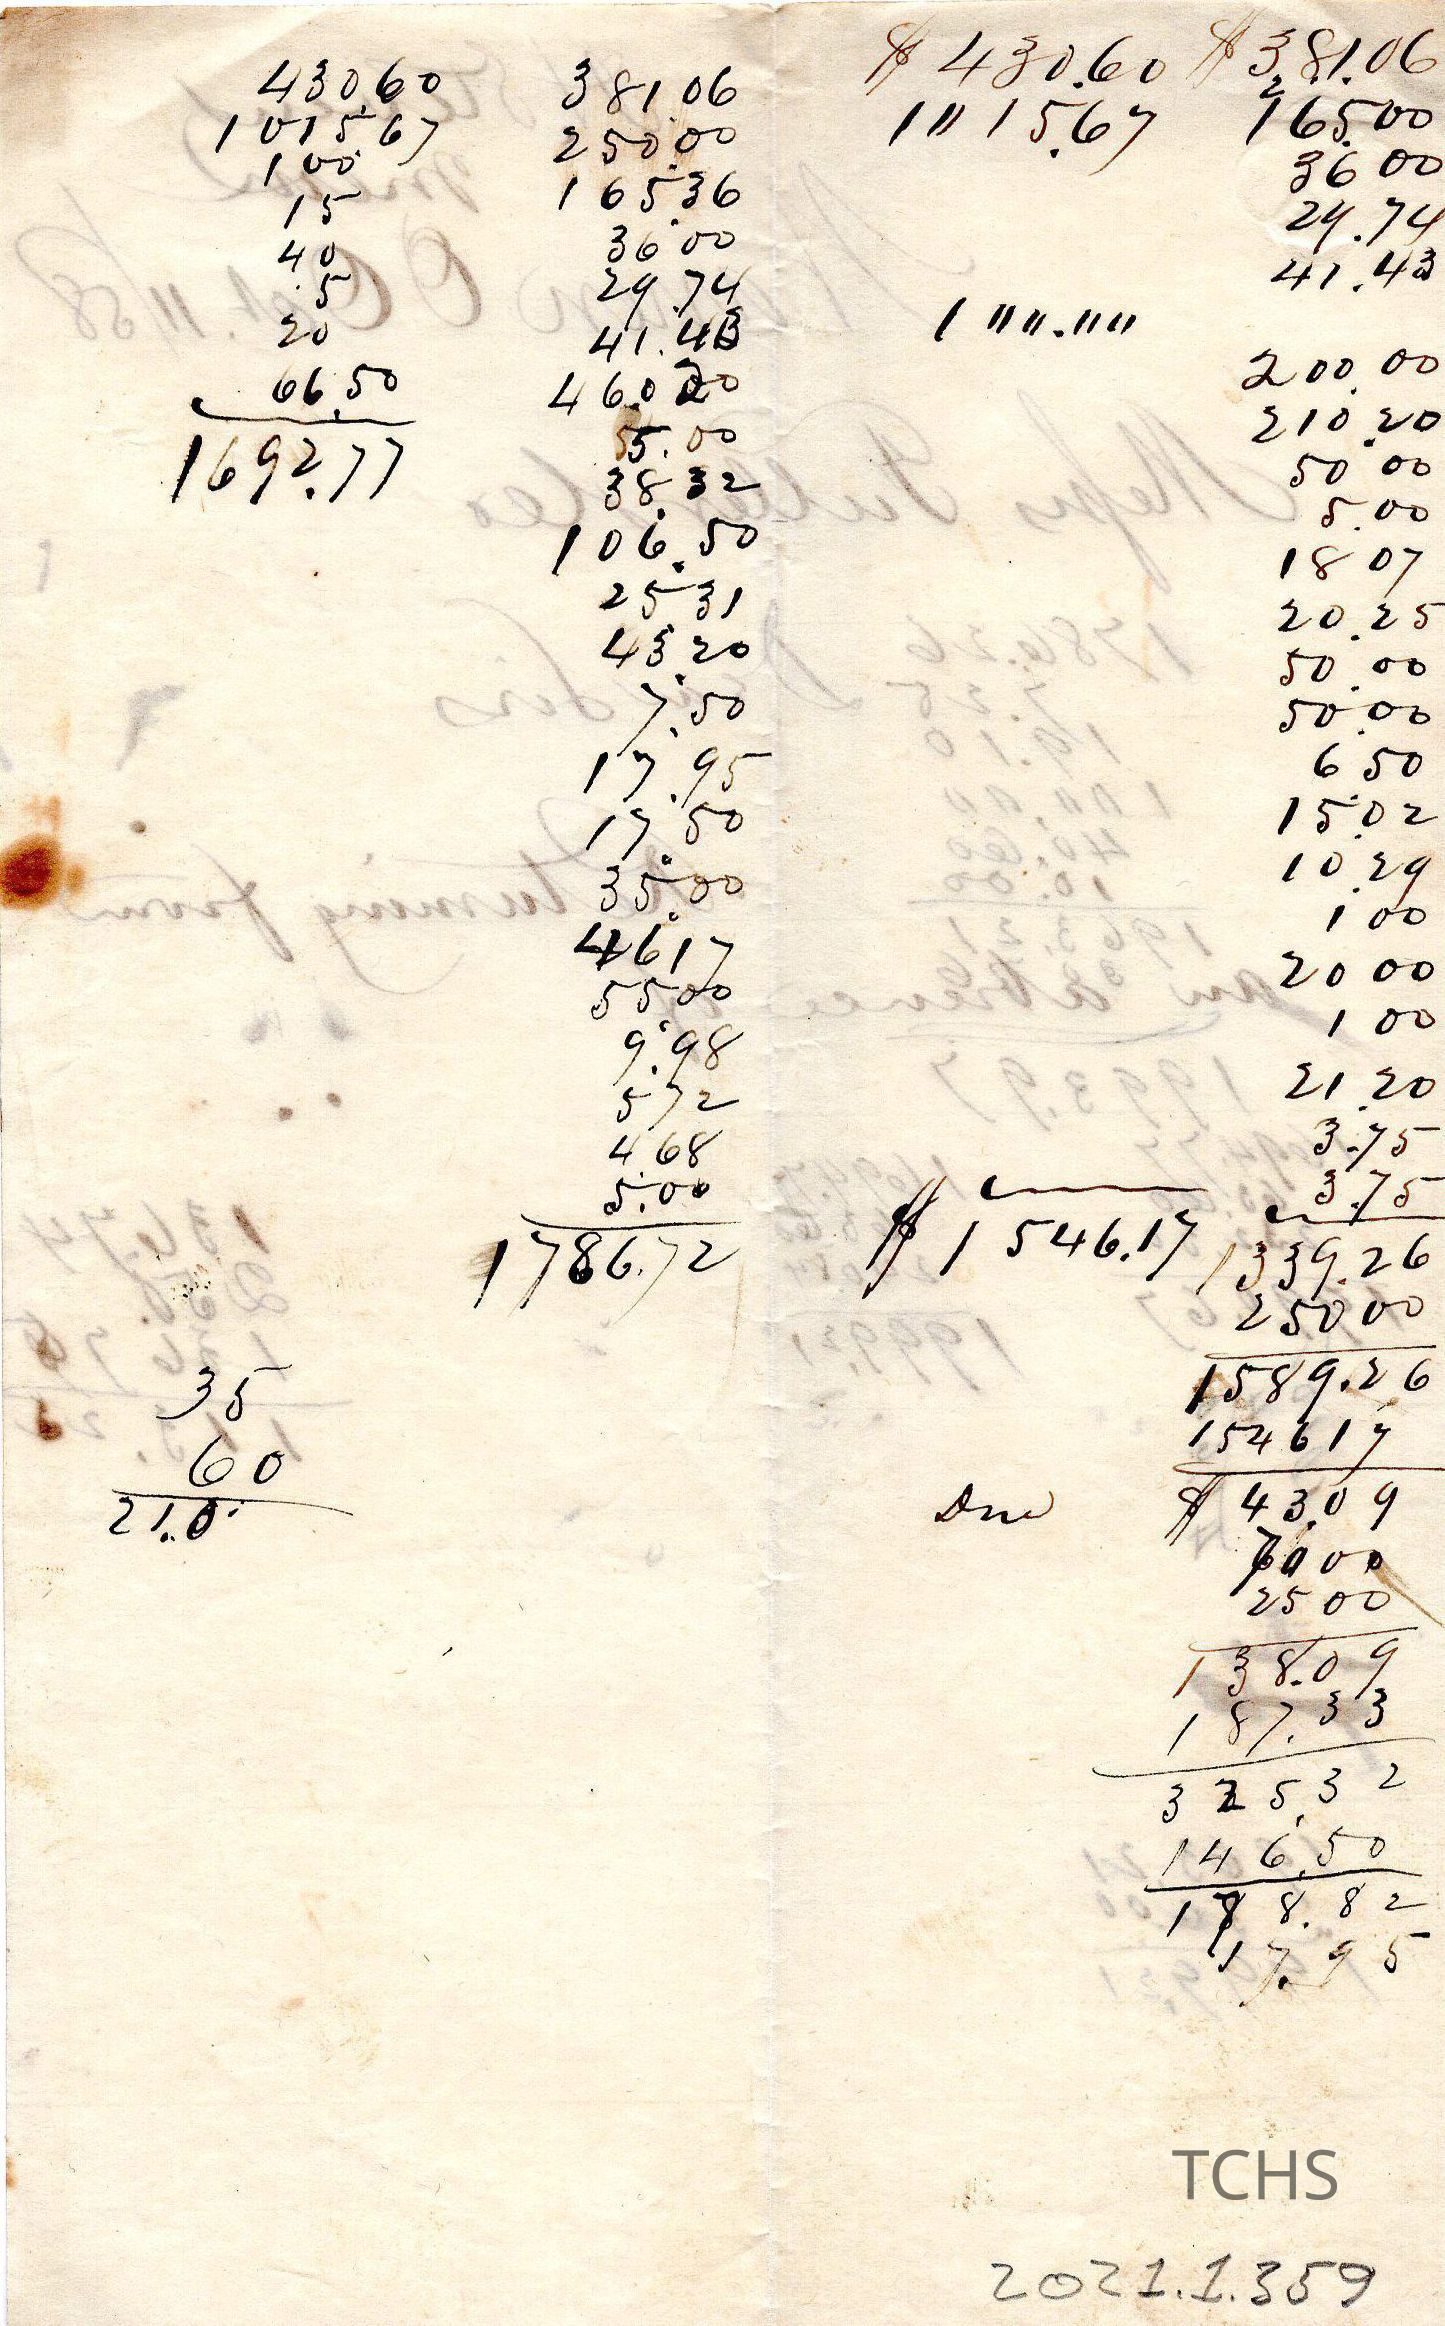 430.60
1015.67
100
15
40
.5
20
66.50
1692.77
35
60
21.0.
381.06
250.00
165.36
36.00
29.74
41.43
460.20
55.00
38.32
106.50
25.31
43.20
7.50
17.95
17.50
35.00
46.17
55.00
9.98
5.72
4.68
5.00
1786.72
$ 430.60
1 11 15.67
1 " " . " "
$ 1546.17
Due
$ 381.06
165.00
36 00
29.74
41.43
200.00
210.20
50 00
5.00
18 07
20.25
50.00
50.00
6.50
15.02
10.29
1 00
20 00
1 00
21.20
3.75
3.75
1339.26
250 00
1589.26
1546 17
$ 43.09
70 00
25 00
138.09
187.33
325.32
146.50
178.82
17.95
TCHS
2021.1.359